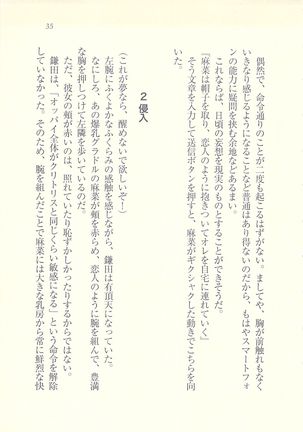 偶然で、命令通りのことが二度も起こるはずがない。ましてや、胸が前触れもなく
いきなり感じるようになることなど普通はあり得ないのだから、もはやスマートフォ
ンの能力に疑問を挟む余地などあるまい。
これならば、日頃の妄想を現実のものとすることができそうだ。
『麻菜は帽子を取り、恋人のように抱きついてオレを自宅に連れていく』
そう文章を入力して送信ボタンを押すと、麻菜がギクシャクした動きでこちらを向
いた。
2 侵入
(これが夢なら、醒めないで欲しいぞ!)
左腕にふくよかなふくらみの感触を感じながら、鎌田は有頂天になっていた。
なにしろ、あの爆乳グラドルの麻菜が頬を赤らめ、恋人のように腕を組んで、豊満
な胸を押しつけて左隣を歩いているのだ。
ただ、彼女の頬が赤いのは、照れていたり恥ずかしかったりするからではない。
鎌田は、「オッパイ全体がクリトリスと同じくらい敏感になる」という命令を解除
していなかった。そのため、腕を組んだことで麻菜には大きな乳房から常に鮮烈な快
35